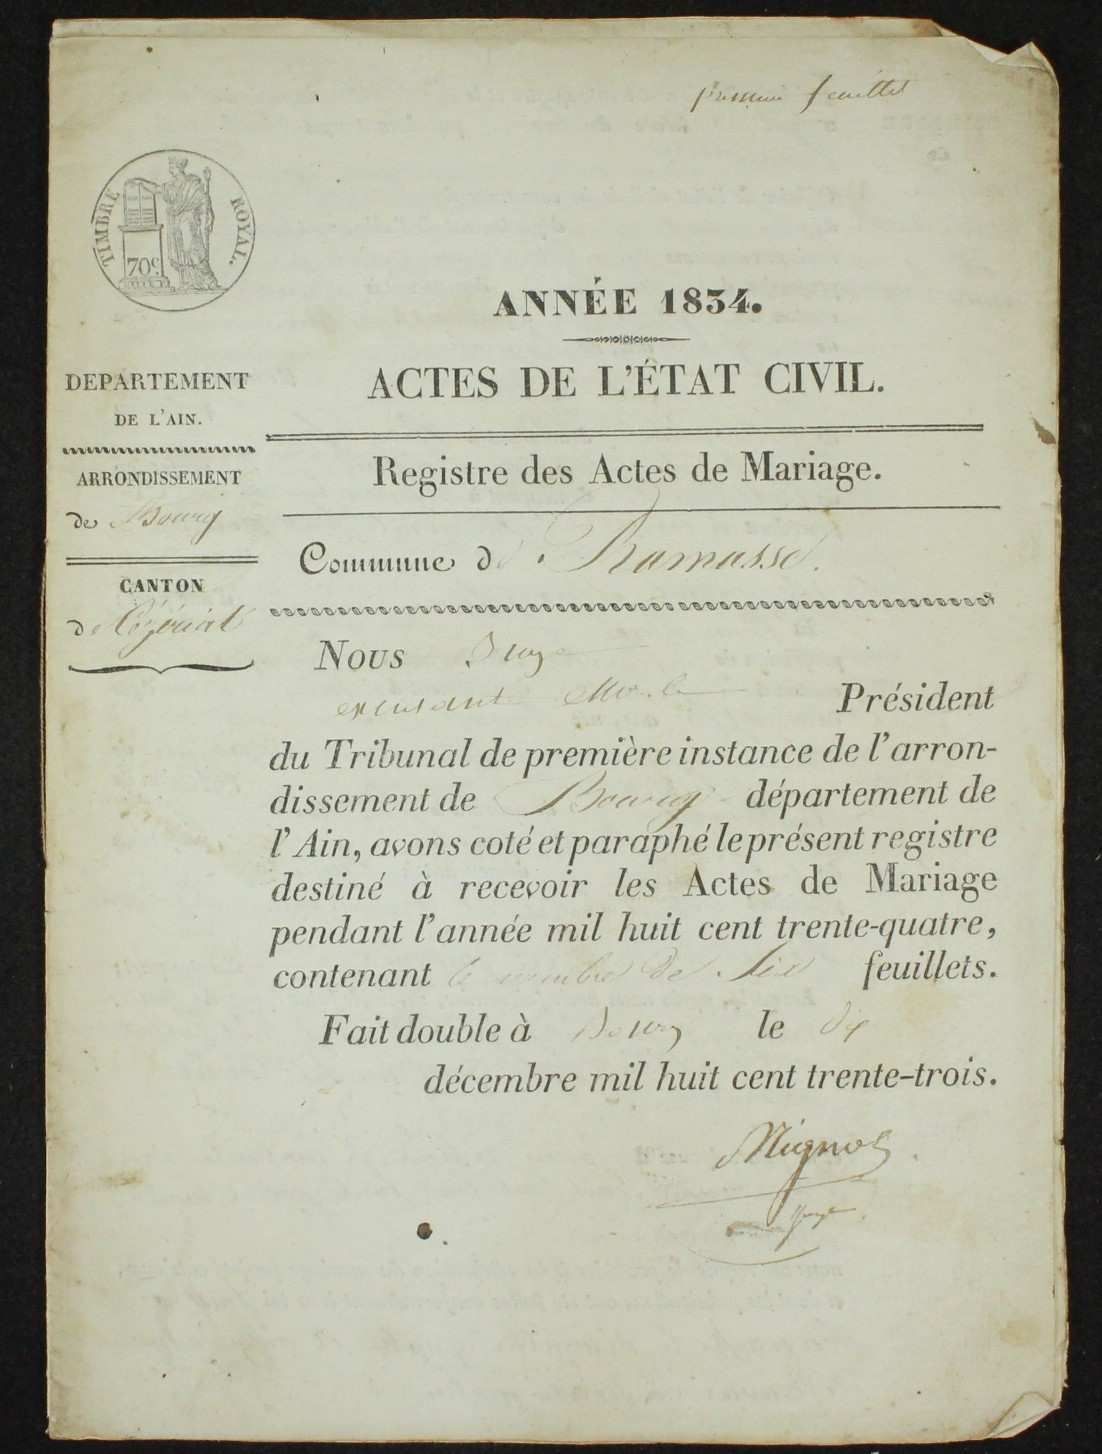 premier feuillet
TIMBRE ROYAL.
70c.
ANNÉE 1834.
ACTES DE L'ÉTAT CIVIL.
DEPARTEMENT
DE L'AIN.
ARRONDISSEMENT
de Bourg
CANTON
de Ceyzériat
Registre des Actes de Mariage.
Commune de Ramasse.
Nous Juge
Président
du Tribunal de première instance de l'arron-
dissement de Bourg département de
l'Ain, avons coté et paraphé le présent registre
destiné à recevoir les Actes de Mariage
pendant l'année mil huit cent trente-quatre,
contenant le nombre de Six feuillets.
Fait double à Bourg le dix
décembre mil huit cent trente-trois.
Mignot
juge